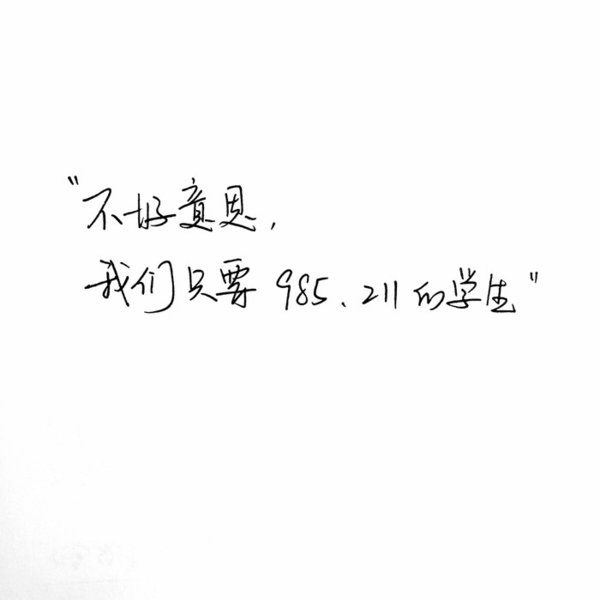 "不好意思，
我们只要985、211的学生"